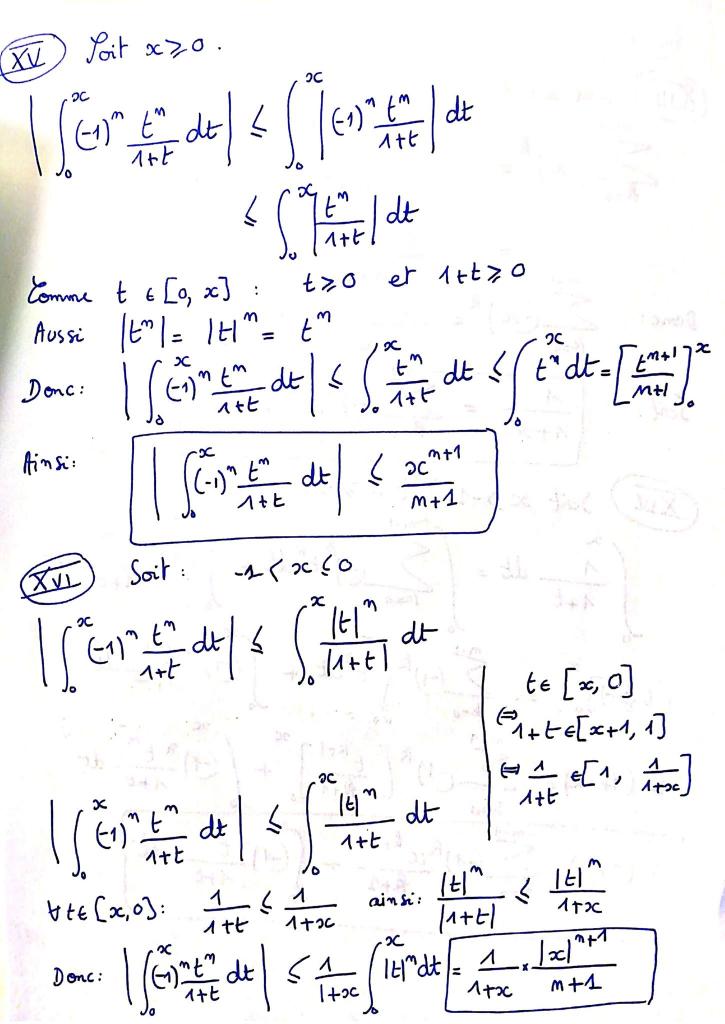 XV Soit x ≥ 0.
| ∫₀ˣ (-1)ⁿ tⁿ/(1+t) dt | ≤ ∫₀ˣ | (-1)ⁿ tⁿ/(1+t) | dt
≤ ∫₀ˣ | tⁿ/(1+t) | dt
Comme t ∈ [0, x] : t ≥ 0 et 1+t ≥ 0
Aussi |tⁿ| = |t|ⁿ = tⁿ
Donc: | ∫₀ˣ (-1)ⁿ tⁿ/(1+t) dt | ≤ ∫₀ˣ tⁿ/(1+t) dt ≤ ∫₀ˣ tⁿ dt = [ tⁿ⁺¹/(n+1) ]₀ˣ
Ainsi: | ∫₀ˣ (-1)ⁿ tⁿ/(1+t) dt | ≤ xⁿ⁺¹/(n+1)
XVI Soit : -1 < x ≤ 0
| ∫₀ˣ (-1)ⁿ tⁿ/(1+t) dt | ≤ ∫₀ˣ |t|ⁿ/|1+t| dt
t ∈ [x, 0]
⇔ 1+t ∈ [x+1, 1]
⇔ 1/(1+t) ∈ [1, 1/(1+x)]
| ∫₀ˣ (-1)ⁿ tⁿ/(1+t) dt | ≤ ∫₀ˣ |t|ⁿ/(1+t) dt
∀ t ∈ [x, 0]: 1/(1+t) ≤ 1/(1+x) ainsi: |t|ⁿ/|1+t| ≤ |t|ⁿ/(1+x)
Donc: | ∫₀ˣ (-1)ⁿ tⁿ/(1+t) dt | ≤ 1/(1+x) ∫₀ˣ |t|ⁿ dt = 1/(1+x) × |x|ⁿ⁺¹/(n+1)